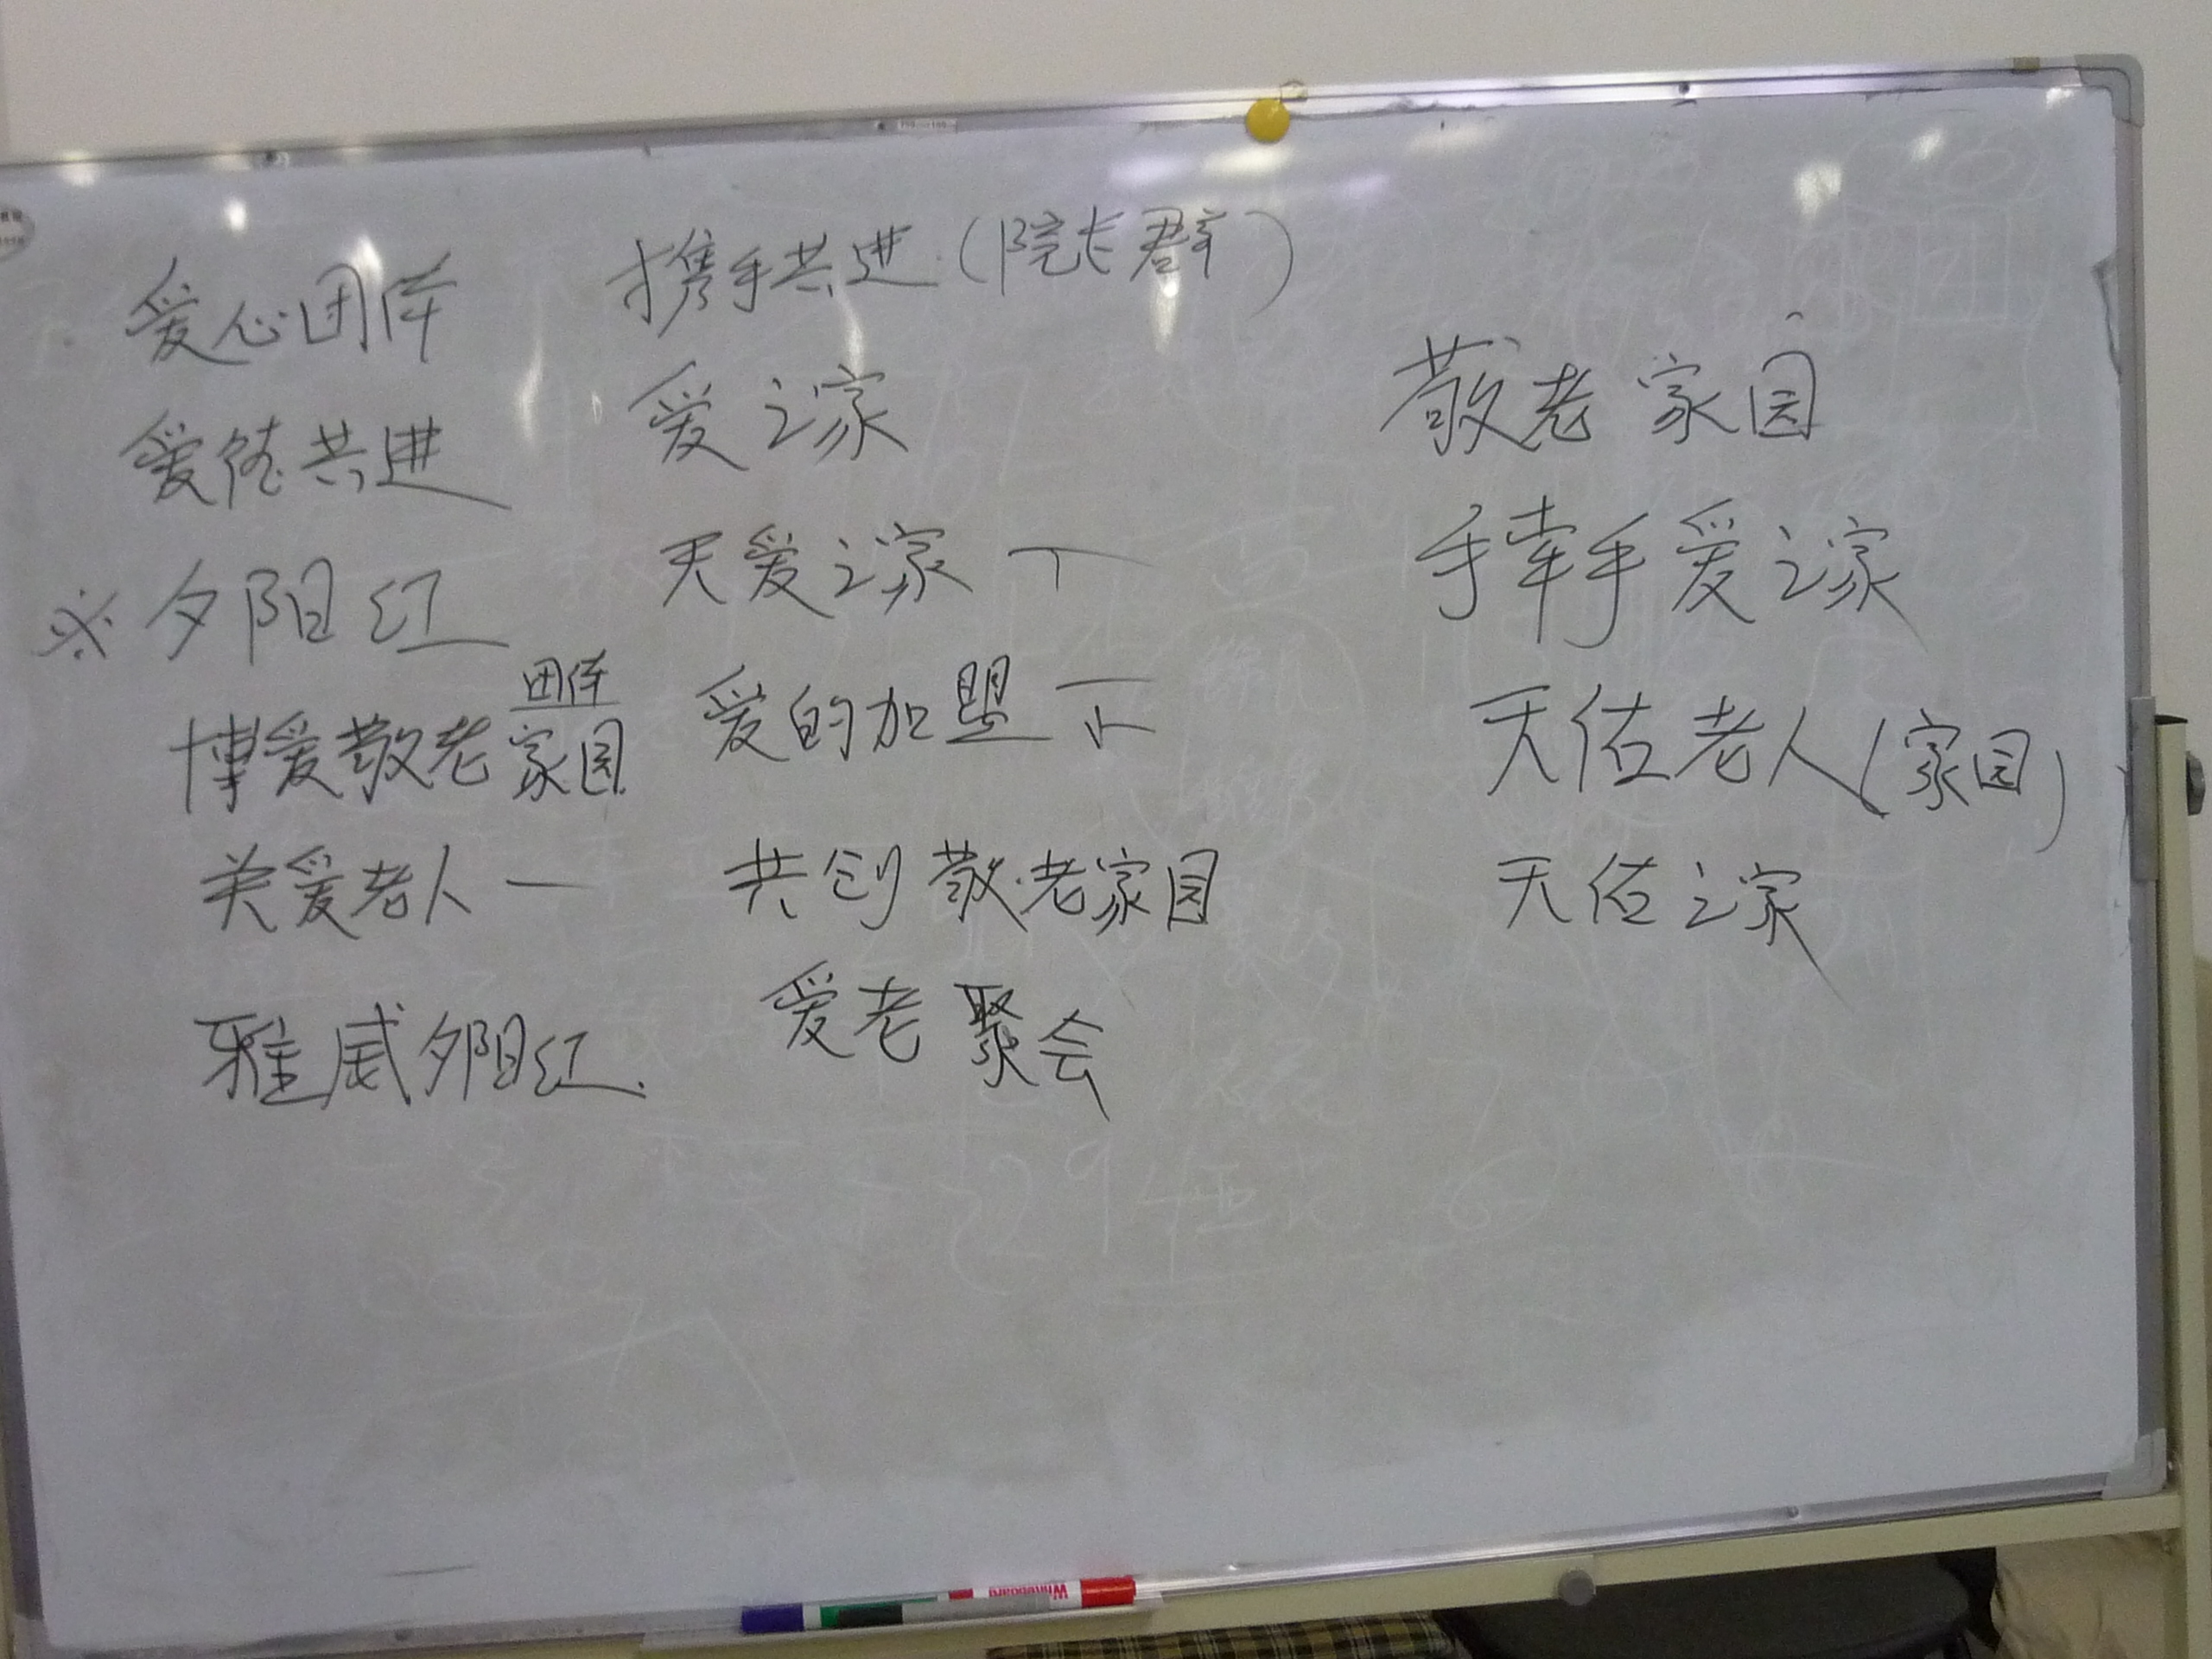 爱心团体
爱德共进
※夕阳红
团体
博爱敬老家园
关爱老人一
雅威夕阳红.
携手共进(院长群)
爱之家
天爱之家 丅
爱的加盟 下
共创敬老家园
爱老聚会
敬老家园
手牵手爱之家
天佑老人(家园)
天佑之家
Whiteboard